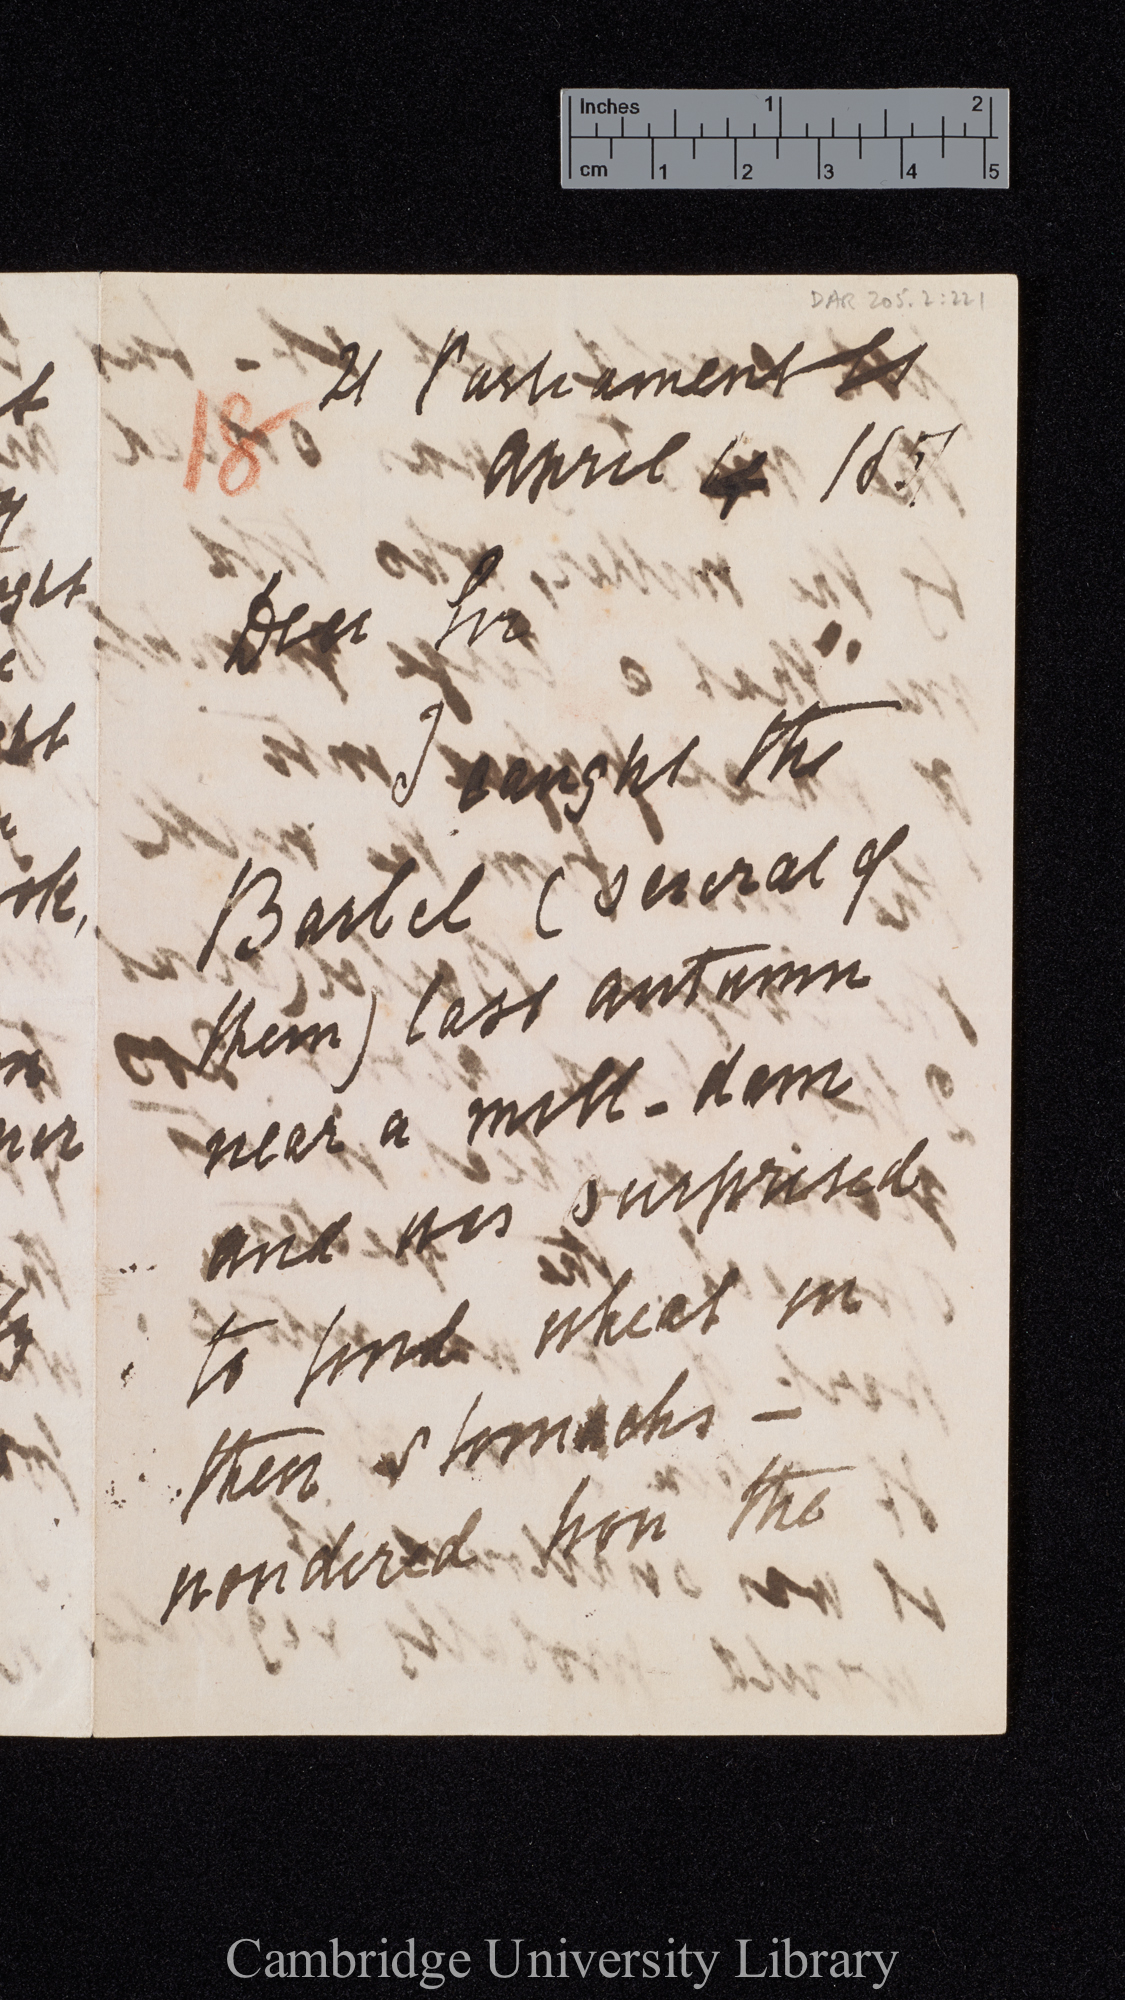 Inches 1 2
cm 1 2 3 4 5
DAR 205.2:221
18
21 Parliament St
April 185
Dear Sir
I caught the
Barbel (several of
them) last autumn
near a mill-dam
and was surprised
to find the wheat in
their stomachs –
wondered how the
Cambridge University Library